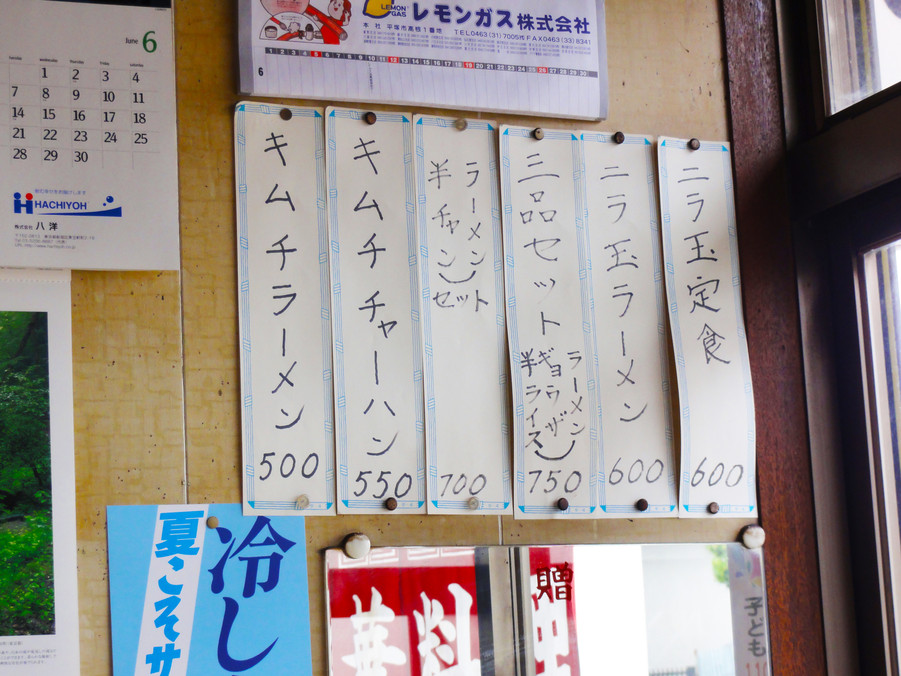 June 6
1 2 3 4
7 8 9 10 11
14 15 16 17 18
21 22 23 24 25
28 29 30
HACHIYOH
株式会社 八洋
LEMON GAS
レモンガス株式会社
本社 平塚市高根1番地 TEL0463(31)7005㈹ FAX0463(33)8341
6
ニラ玉定食
600
ニラ玉ラーメン
600
三品セット
ラーメン
ギョウザ
半ライス
750
ラーメン
半チャンセット
700
キムチチャーハン
550
キムチラーメン
500
冷し
夏こそサ
華料理
贈
子ども